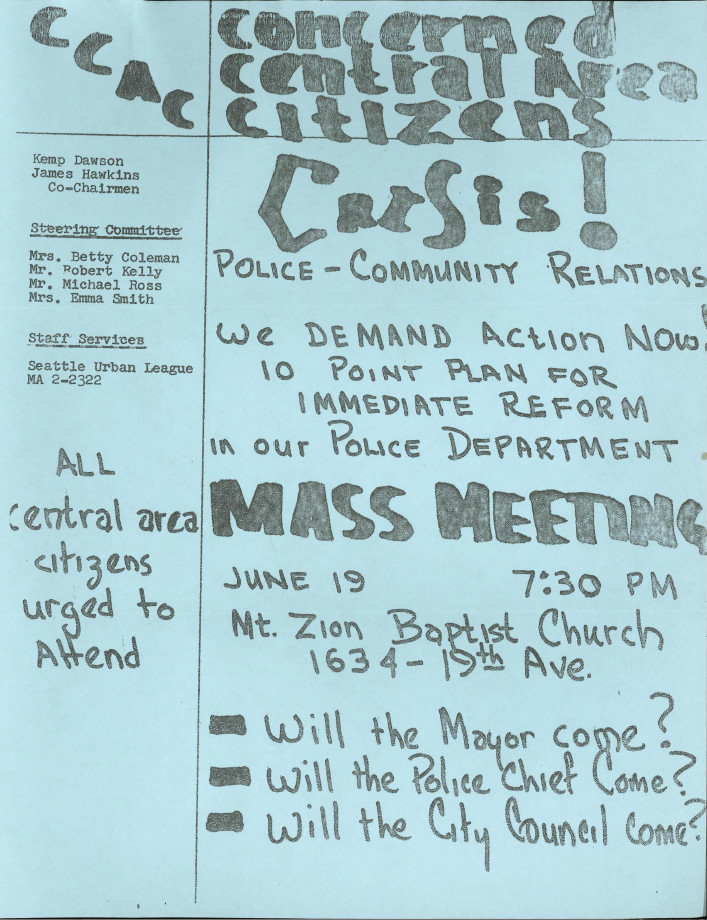 CCAC
Concerned
Central Area
Citizens
Kemp Dawson
James Hawkins
Co-Chairmen
Steering Committee
Mrs. Betty Coleman
Mr. Robert Kelly
Mr. Michael Ross
Mrs. Emma Smith
Staff Services
Seattle Urban League
MA 2-2322
ALL
central area
citizens
urged to
Attend
CriSis!
POLICE - COMMUNITY RELATIONS
We DEMAND Action NOW!
10 POINT PLAN FOR
IMMEDIATE REFORM
in our POLICE DEPARTMENT
MASS MEETING
JUNE 19 7:30 PM
Mt. Zion Baptist Church
1634 - 19th Ave.
Will the Mayor come?
Will the Police Chief Come?
Will the City Council come?